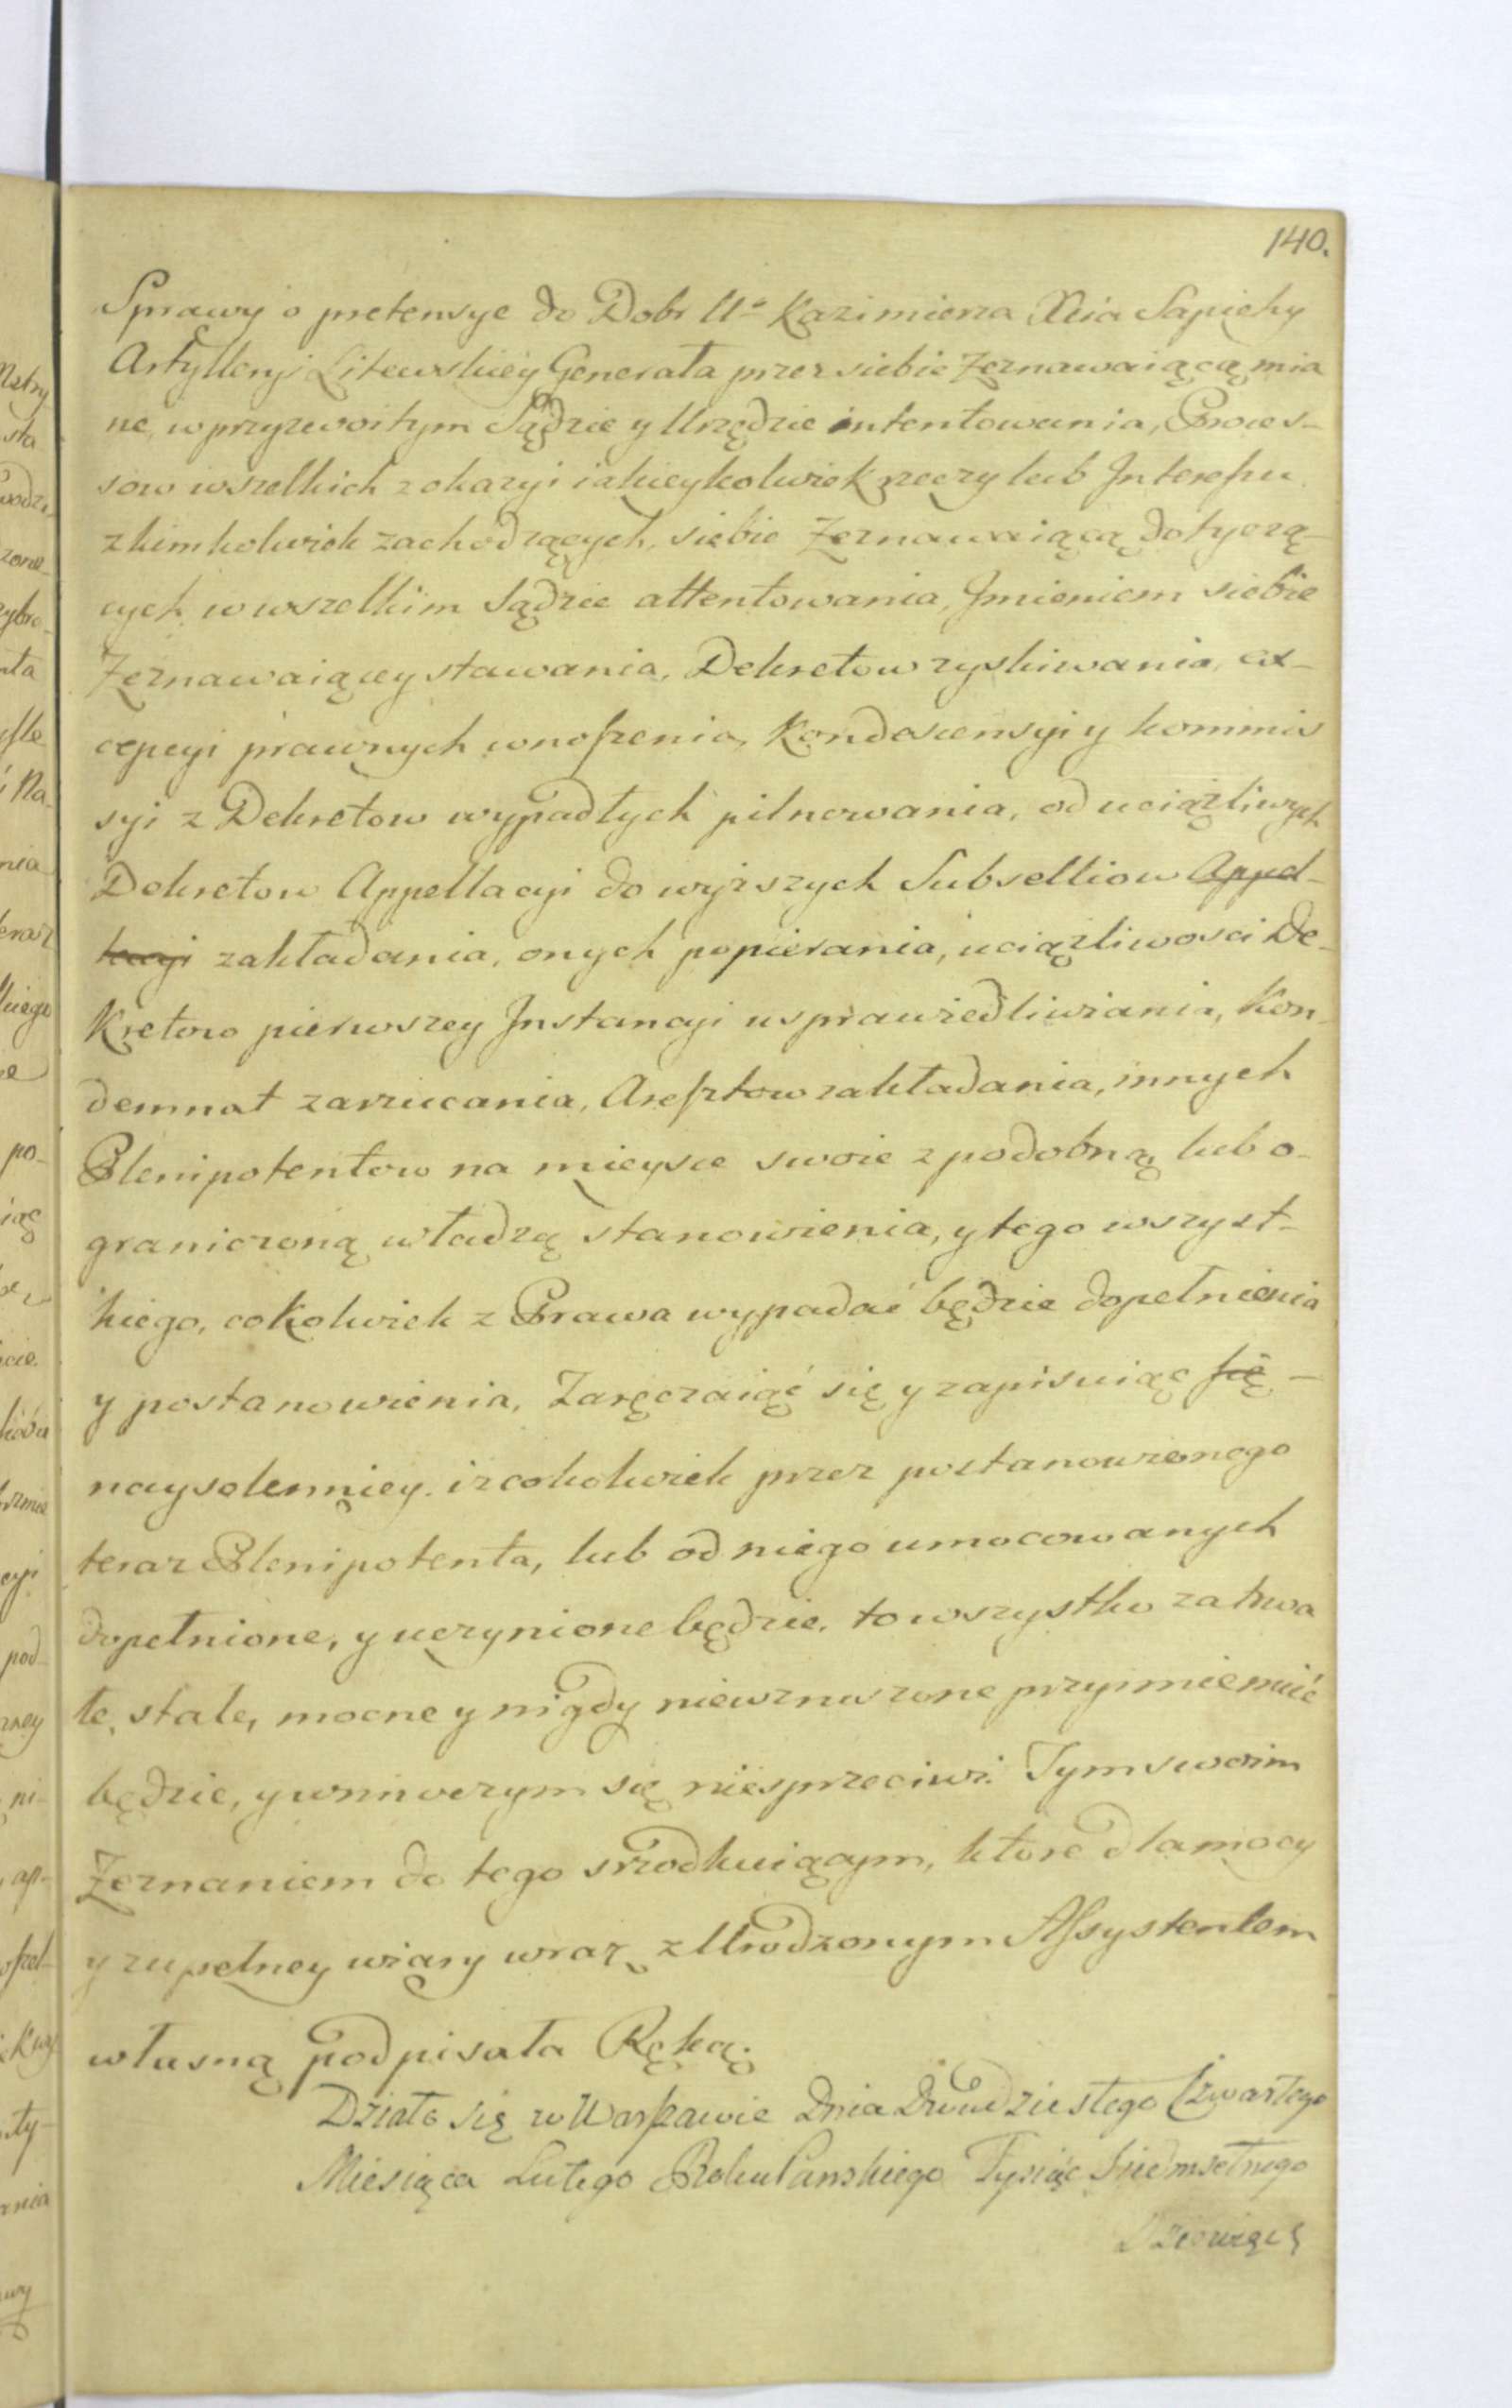 140.
Sprawy o pretensye do Dobr Uo Kazimierza Xcia Sapiehy
Artylleryi Litewskiey Generała przez siebie Zeznawaiącą mia
ne, w przyzwoitym Sądzie y Urzędzie intentowania, Proces-
sow wszelkich z okazyi iakieykolwiek rzeczy lub Interessu
z kimkolwiek zachodzących, siebie Zeznawaiącą dotyczą-
cych w wszelkim Sądzie attentowania, Jmieniem siebie
Zeznawaiącey stawania, Dekretow zyskiwania, ex-
cepcyi prawnych wnoszenia, Kondescensyi y kommis
syi z Dekretow wypadłych pilnowania, od uciążliwych
Dekretow Appellacyi do wyższych Subselliow Appel-
lacyi zakładania, onych popierania, uciążliwosci De-
kretow pierwszey Jnstancyi usprawiedliwiania, Kon-
demnat zarzucania, Aresztow zakładania, innych
Plenipotentow na mieysce swoie z podobną lub o-
graniczoną władzą stanowienia, y tego wszyst-
kiego, cokolwiek z Prawa wypadać będzie dopełnienia
y postanowienia, Zaręczaiąć się y zapisuiąc się -
naysolenniey. iz cokolwiek przez postanowionego
teraz Plenipotenta, lub od niego umocowanych
dopełnione, y uczynione będzie, to wszystko za trwa
łe, stałe, mocne y nigdy niewzruszone przyimie mieć
będzie, y w niwczym się niesprzeciwi. Tym swoim
Zeznaniem do tego srzodkuiącym, ktore dla mocy
y zupełney wiary wraz z Urodzonym Assystentem
własną podpisała Ręką.
Działo się w Warszawie Dnia Dwudziestego Czwartego
Miesiąca Lutego Roku Panskiego Tysiąc Siedmsetnego
Dziewięć